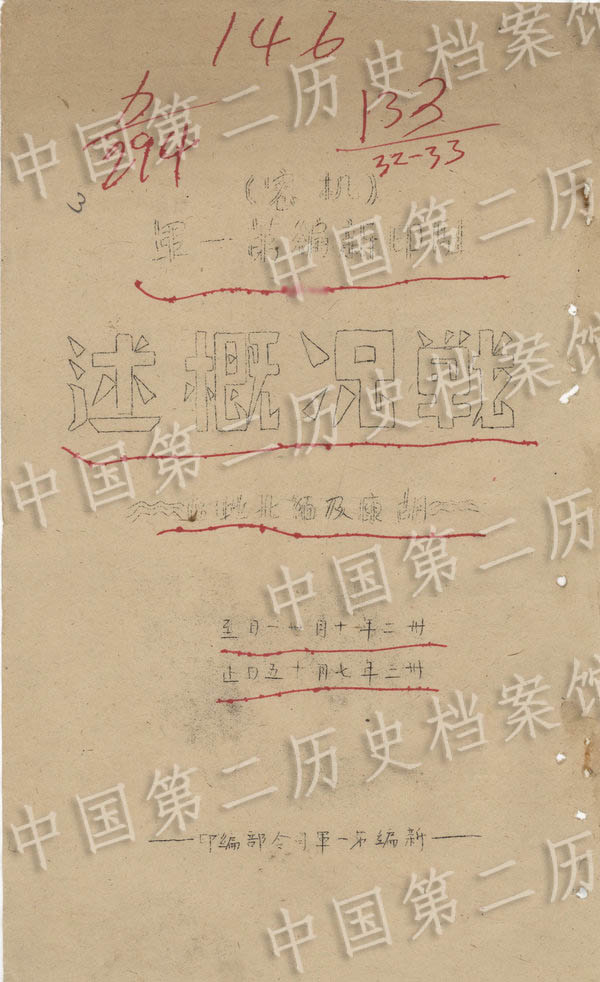 146
294
133
32-33
3
(机密)
駐印新編第一軍
戦况概述
胡康及緬北地區
卅二年十月廿一日至
卅三年七月十五日止
新編第一軍司令部編印
中国第二历史档案馆
中国第二历
中国第二历史档案馆
中国第二历
中国第二历史档案馆
中国第二历